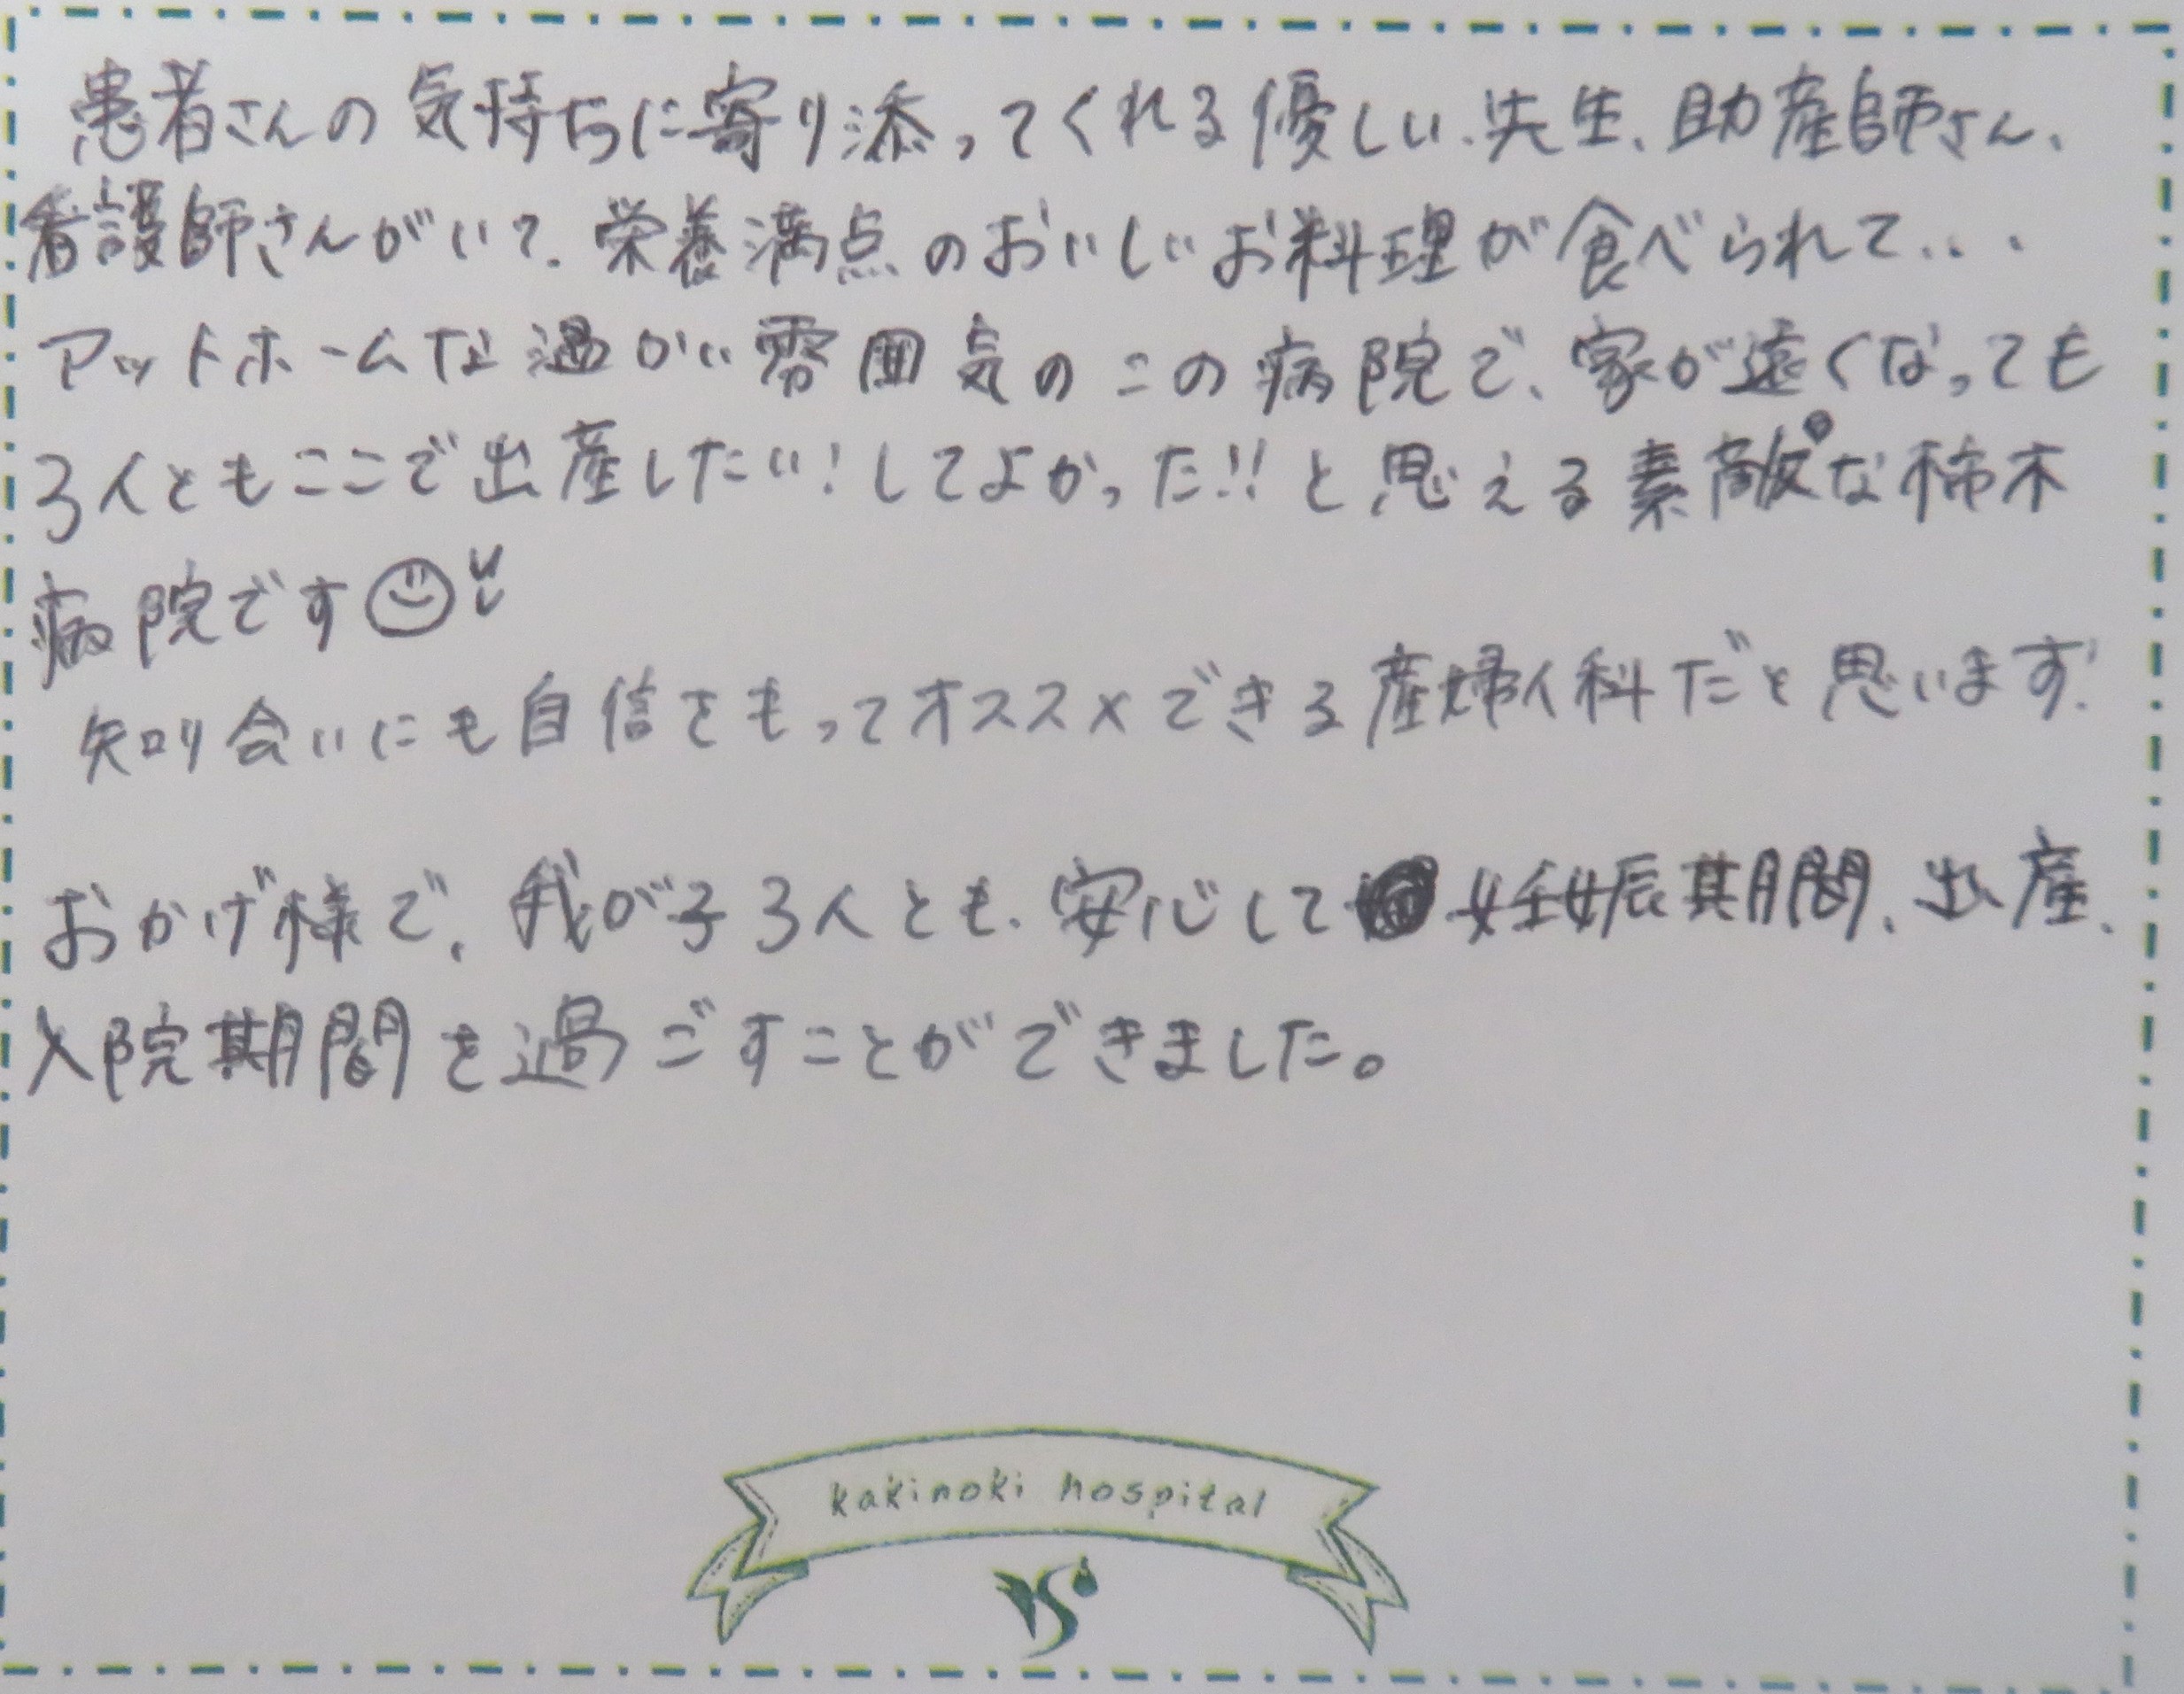 患者さんの気持ちに寄り添ってくれる優しい、先生、助産師さん、
看護師さんがいて、栄養満点のおいしいお料理が食べられて...
アットホームな温かい雰囲気のこの病院で、家が遠くなっても
3人ともここで出産したい!してよかった!!と思える素敵な柿木
病院です
知り合いにも自信をもってオススメできる産婦人科だと思います!
おかげ様で、我が子3人とも、安心して妊娠期間、出産、
入院期間を過ごすことができました。
kakinoki hospital